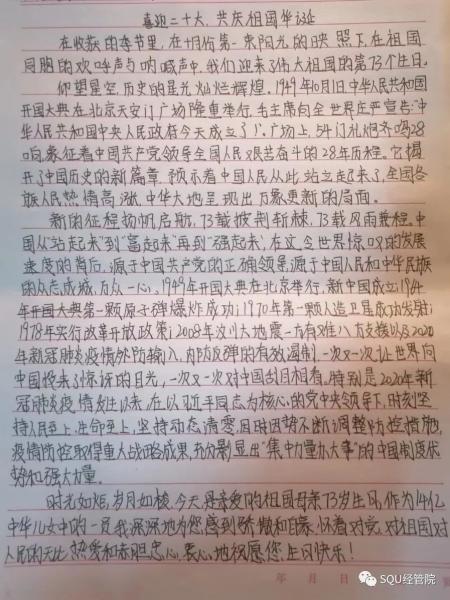 喜迎二十大、共庆祖国华诞
在收获的季节里，在十月份第一束阳光的映照下，在祖国
同胞的欢呼声与呐喊声中，我们迎来了伟大祖国的第73个生日。
仰望星空，历史的星光灿烂辉煌。1949年10月1日，中华人民共和国
开国大典在北京天安门广场隆重举行，毛主席向全世界庄严宣告:"中
华人民共和国中央人民政府今天成立了!"。广场上，54门礼炮齐鸣28
响，象征着中国共产党领导全国人民艰苦奋斗的28年历程。它揭
开了中国历史的新篇章，预示着中国人民从此站立起来了，全国各
族人民热情高涨，中华大地呈现出万象更新的局面。
新的征程扬帆启航，73载披荆斩棘，73载风雨兼程。中
国从"站起来"到"富起来"再到"强起来"，在这令世界惊叹的发展
速度的背后，源于中国共产党的正确领导，源于中国人民和中华民族
的众志成城，万众一心。1949年开国大典在北京举行，新中国成立；1964
年开国大典第一颗原子弹爆炸成功；1970年第一颗人造卫星成功发射；
1978年实行改革开放政策；2008年汶川大地震一方有难八方支援以及2020
年新冠肺炎疫情外防输入、内防反弹的有效遏制，一次又一次让世界向
中国投来了惊讶的目光，一次又一次对中国刮目相看。特别是2020年新
冠肺炎疫情发生以来，在以习近平同志为核心的党中央领导下，时刻坚
持人民至上、生命至上，坚持动态清零，因时因势不断调整防控措施，
疫情防控取得重大战略成果，充分彰显出"集中力量办大事"的中国制度优
势和强大力量。
时光如炬，岁月如梭，今天是亲爱的祖国母亲73岁生日，作为14亿
中华儿女中的一员，我深深地为您感到骄傲和自豪，怀着对党、对祖国、对
人民的无比热爱和赤胆忠心，衷心地祝愿您，生日快乐！
年 月 日
SQU经管院